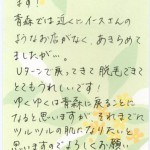 ます!
青森では近くにイースさんの
ようなお店がなく、あきらめて
ましたが…。
Uターンで戻ってきて脱毛できて
とてもうれしいです!
ゆくゆくは青森に戻ることに
なると思いますが、それまでに
ツルツルの肌になりたいと
思いますのでよろしくお願い